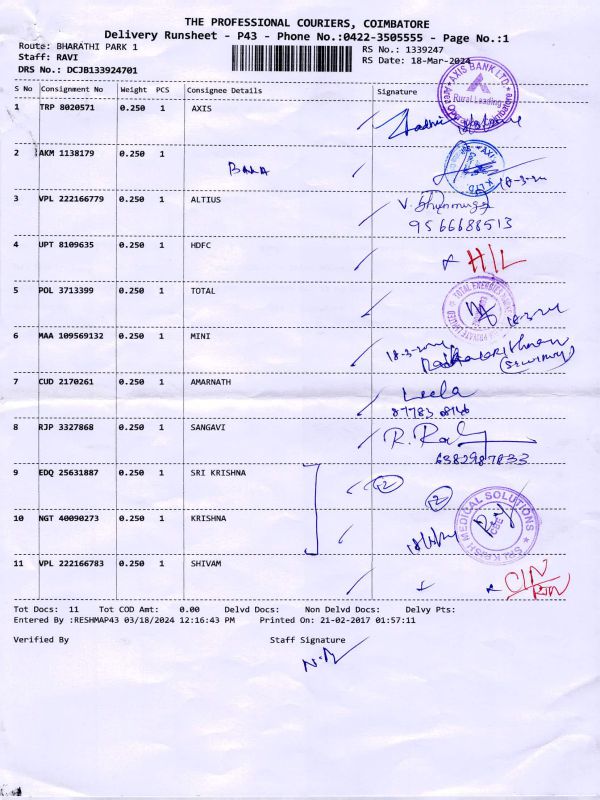 THE PROFESSIONAL COURIERS, COIMBATORE
Delivery Runsheet - P43 - Phone No.:0422-3505555 - Page No.:1
Route: BHARATHI PARK 1
RS No.: 1339247
Staff: RAVI
RS Date: 18-Mar-2024
DRS No.: DCJB133924701
S No Consignment No Weight PCS Consignee Details Signature
AXIS BANK LTD
Rural Lending
1 TRP 8020571 0.250 1 AXIS
2 AKM 1138179 0.250 1
BANA
18-3-24
3 VPL 222166779 0.250 1 ALTIUS
9566688513
4 UPT 8109635 0.250 1 HDFC
H/L
5 POL 3713399 0.250 1 TOTAL
TOTAL ENERGIES
18-3-24
6 MAA 109569132 0.250 1 MINI
18-3-2024
(Security)
7 CUD 2170261 0.250 1 AMARNATH
Leela
8 RJP 3327868 0.250 1 SANGAVI
6382987833
9 EDQ 25631887 0.250 1 SRI KRISHNA
2
2
10 NGT 40090273 0.250 1 KRISHNA
SRI KRISH MEDICAL SOLUTIONS
CBE
11 VPL 222166783 0.250 1 SHIVAM
Tot Docs: 11 Tot COD Amt: 0.00 Delvd Docs: Non Delvd Docs: Delvy Pts:
Entered By :RESHMAP43 03/18/2024 12:16:43 PM Printed On: 21-02-2017 01:57:11
Verified By Staff Signature